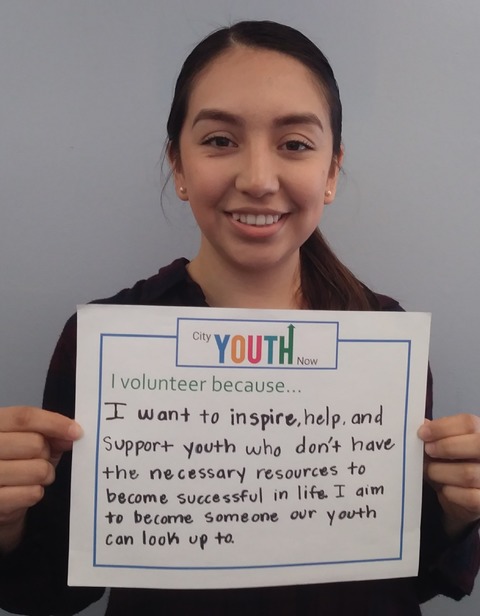 City YOUTH Now
I volunteer because...
I want to inspire, help, and
support youth who don't have
the necessary resources to
become successful in life. I aim
to become someone our youth
can look up to.